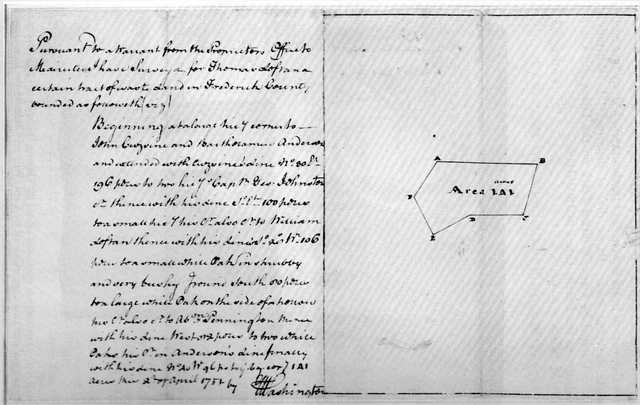 Pursuant to a Warrant from the Proprietors Office to
Me directed I have Survey'd for Thomas Loftan a
certain tract of waste Land in Frederick County
bounded as followeth (viz)
Beginning at a large hic'y corner to
John Cozine and Barthoramew Anderson
and extended with Cozine's line No.
196 poles to two hic'ys Cap'n Geo. Johnston
thence with his line So. Et. 100 poles
to a small hic'y his Cr. also Cr. to William
Loftan thence with his line Wt. 106
poles to a small white Oak in shrubby
and very bushy Ground South 80 poles
to a large white Oak on the side of a hollow
his Cr. also Cr. to Pennington thence
with his line West poles to two white
Oaks his Cr. in Anderson's line finally
with his line No. Wt. 96 po. to ye beg. cor. 141
acres this of April 1751 by
GWashington
A B
acres
Area 141
F
D C
E